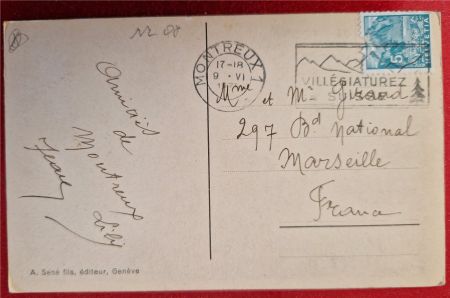 MONTREUX 1
17-18
9 · VI
VILLÉGIATUREZ
SUISSE
5
HELVETIA
Amitiés
de
Montreux
Lily
Jean
Mme et Mr Girard
297 Bd National
Marseille
France
A. Sené fils, éditeur, Genève